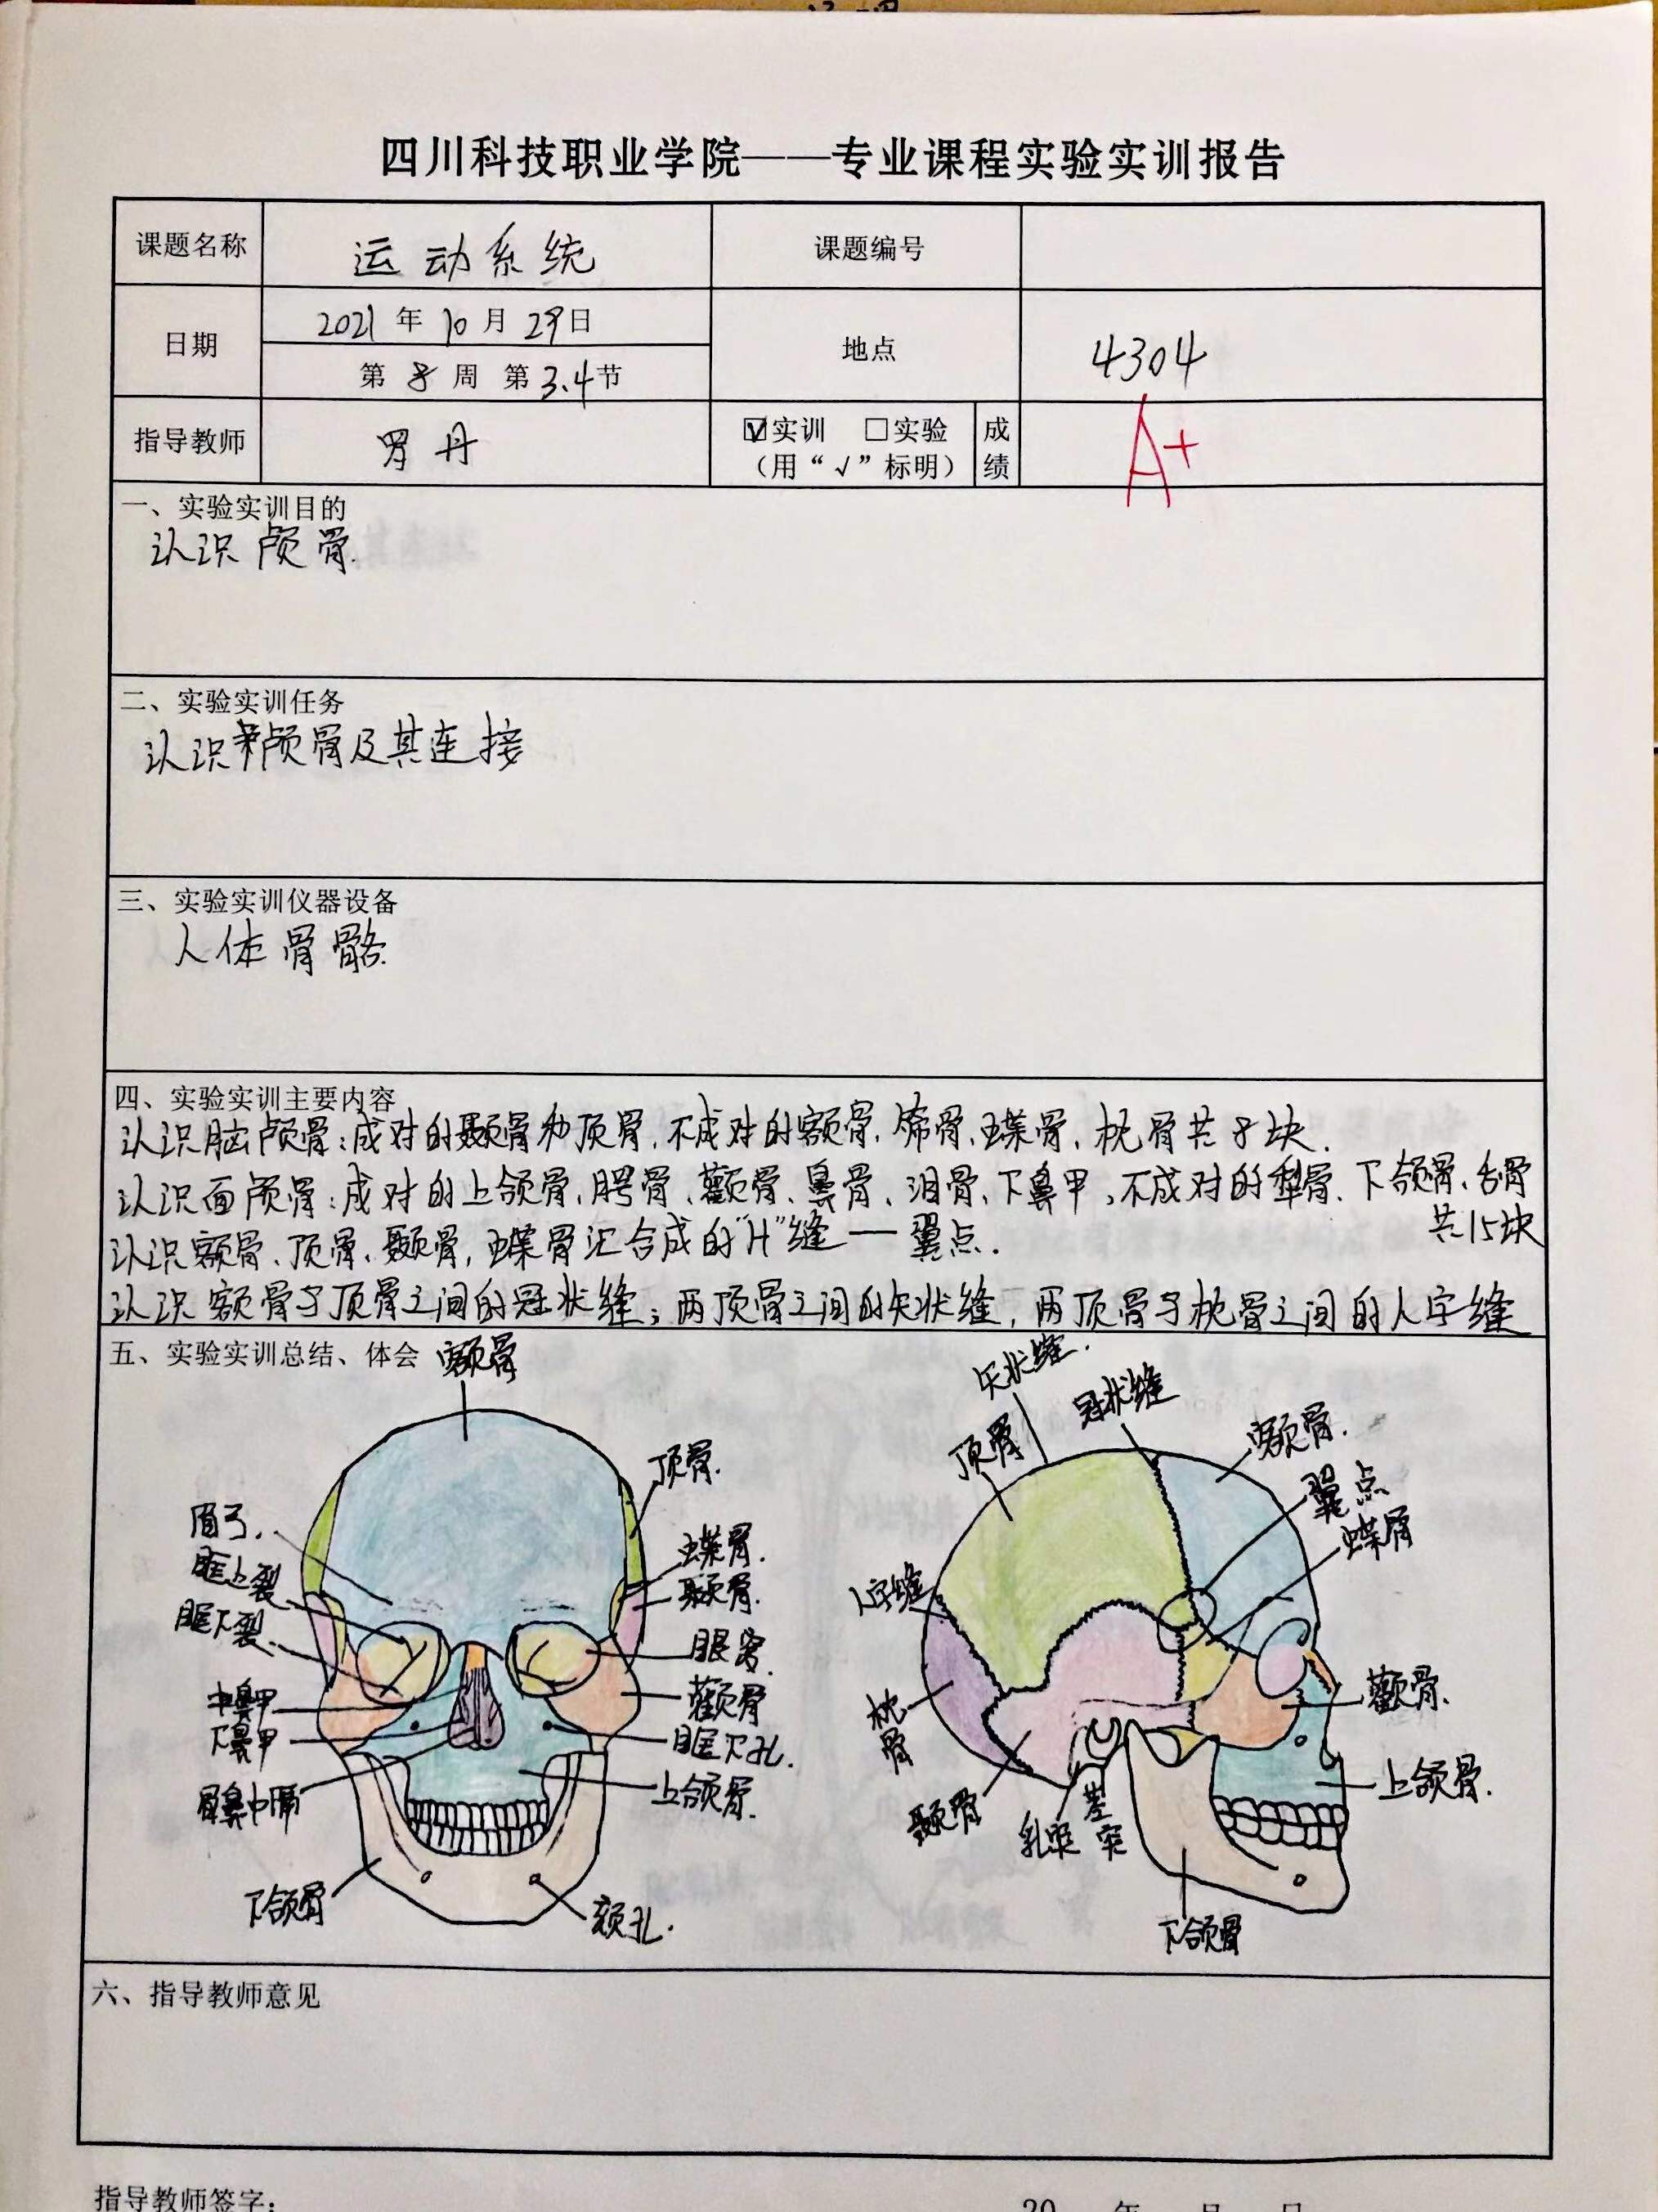 四川科技职业学院——专业课程实验实训报告
课题名称 运动系统 课题编号
日期 2021年10月29日 地点 4304
第8周 第3.4节
指导教师 罗丹 ☑实训 □实验 成绩 A+
（用“√”标明）
一、实验实训目的
认识颅骨.
二、实验实训任务
认识颅骨及其连接
三、实验实训仪器设备
人体骨骼
四、实验实训主要内容
认识脑颅骨：成对的颞骨和顶骨，不成对的额骨、筛骨、蝶骨、枕骨共8块.
认识面颅骨：成对的上颌骨、腭骨、颧骨、鼻骨、泪骨、下鼻甲，不成对的犁骨、下颌骨、舌骨
共15块
认识额骨、顶骨、颞骨，蝶骨汇合成的“H”缝一翼点.
认识额骨与顶骨之间的冠状缝；两顶骨之间的矢状缝，两顶骨与枕骨之间的人字缝
五、实验实训总结、体会
额骨
顶骨.
眉弓.
眶上裂
眶下裂.
蝶骨.
颞骨.
眼窝.
中鼻甲
下鼻甲
颧骨
眶下孔.
骨鼻中隔
上颌骨.
下颌骨
颏孔.
矢状缝.
冠状缝
顶骨
额骨.
翼点
蝶骨
人字缝
枕骨
颧骨.
颞骨
乳突
茎突
上颌骨.
下颌骨
六、指导教师意见
指导教师签字：
20 年 月 日